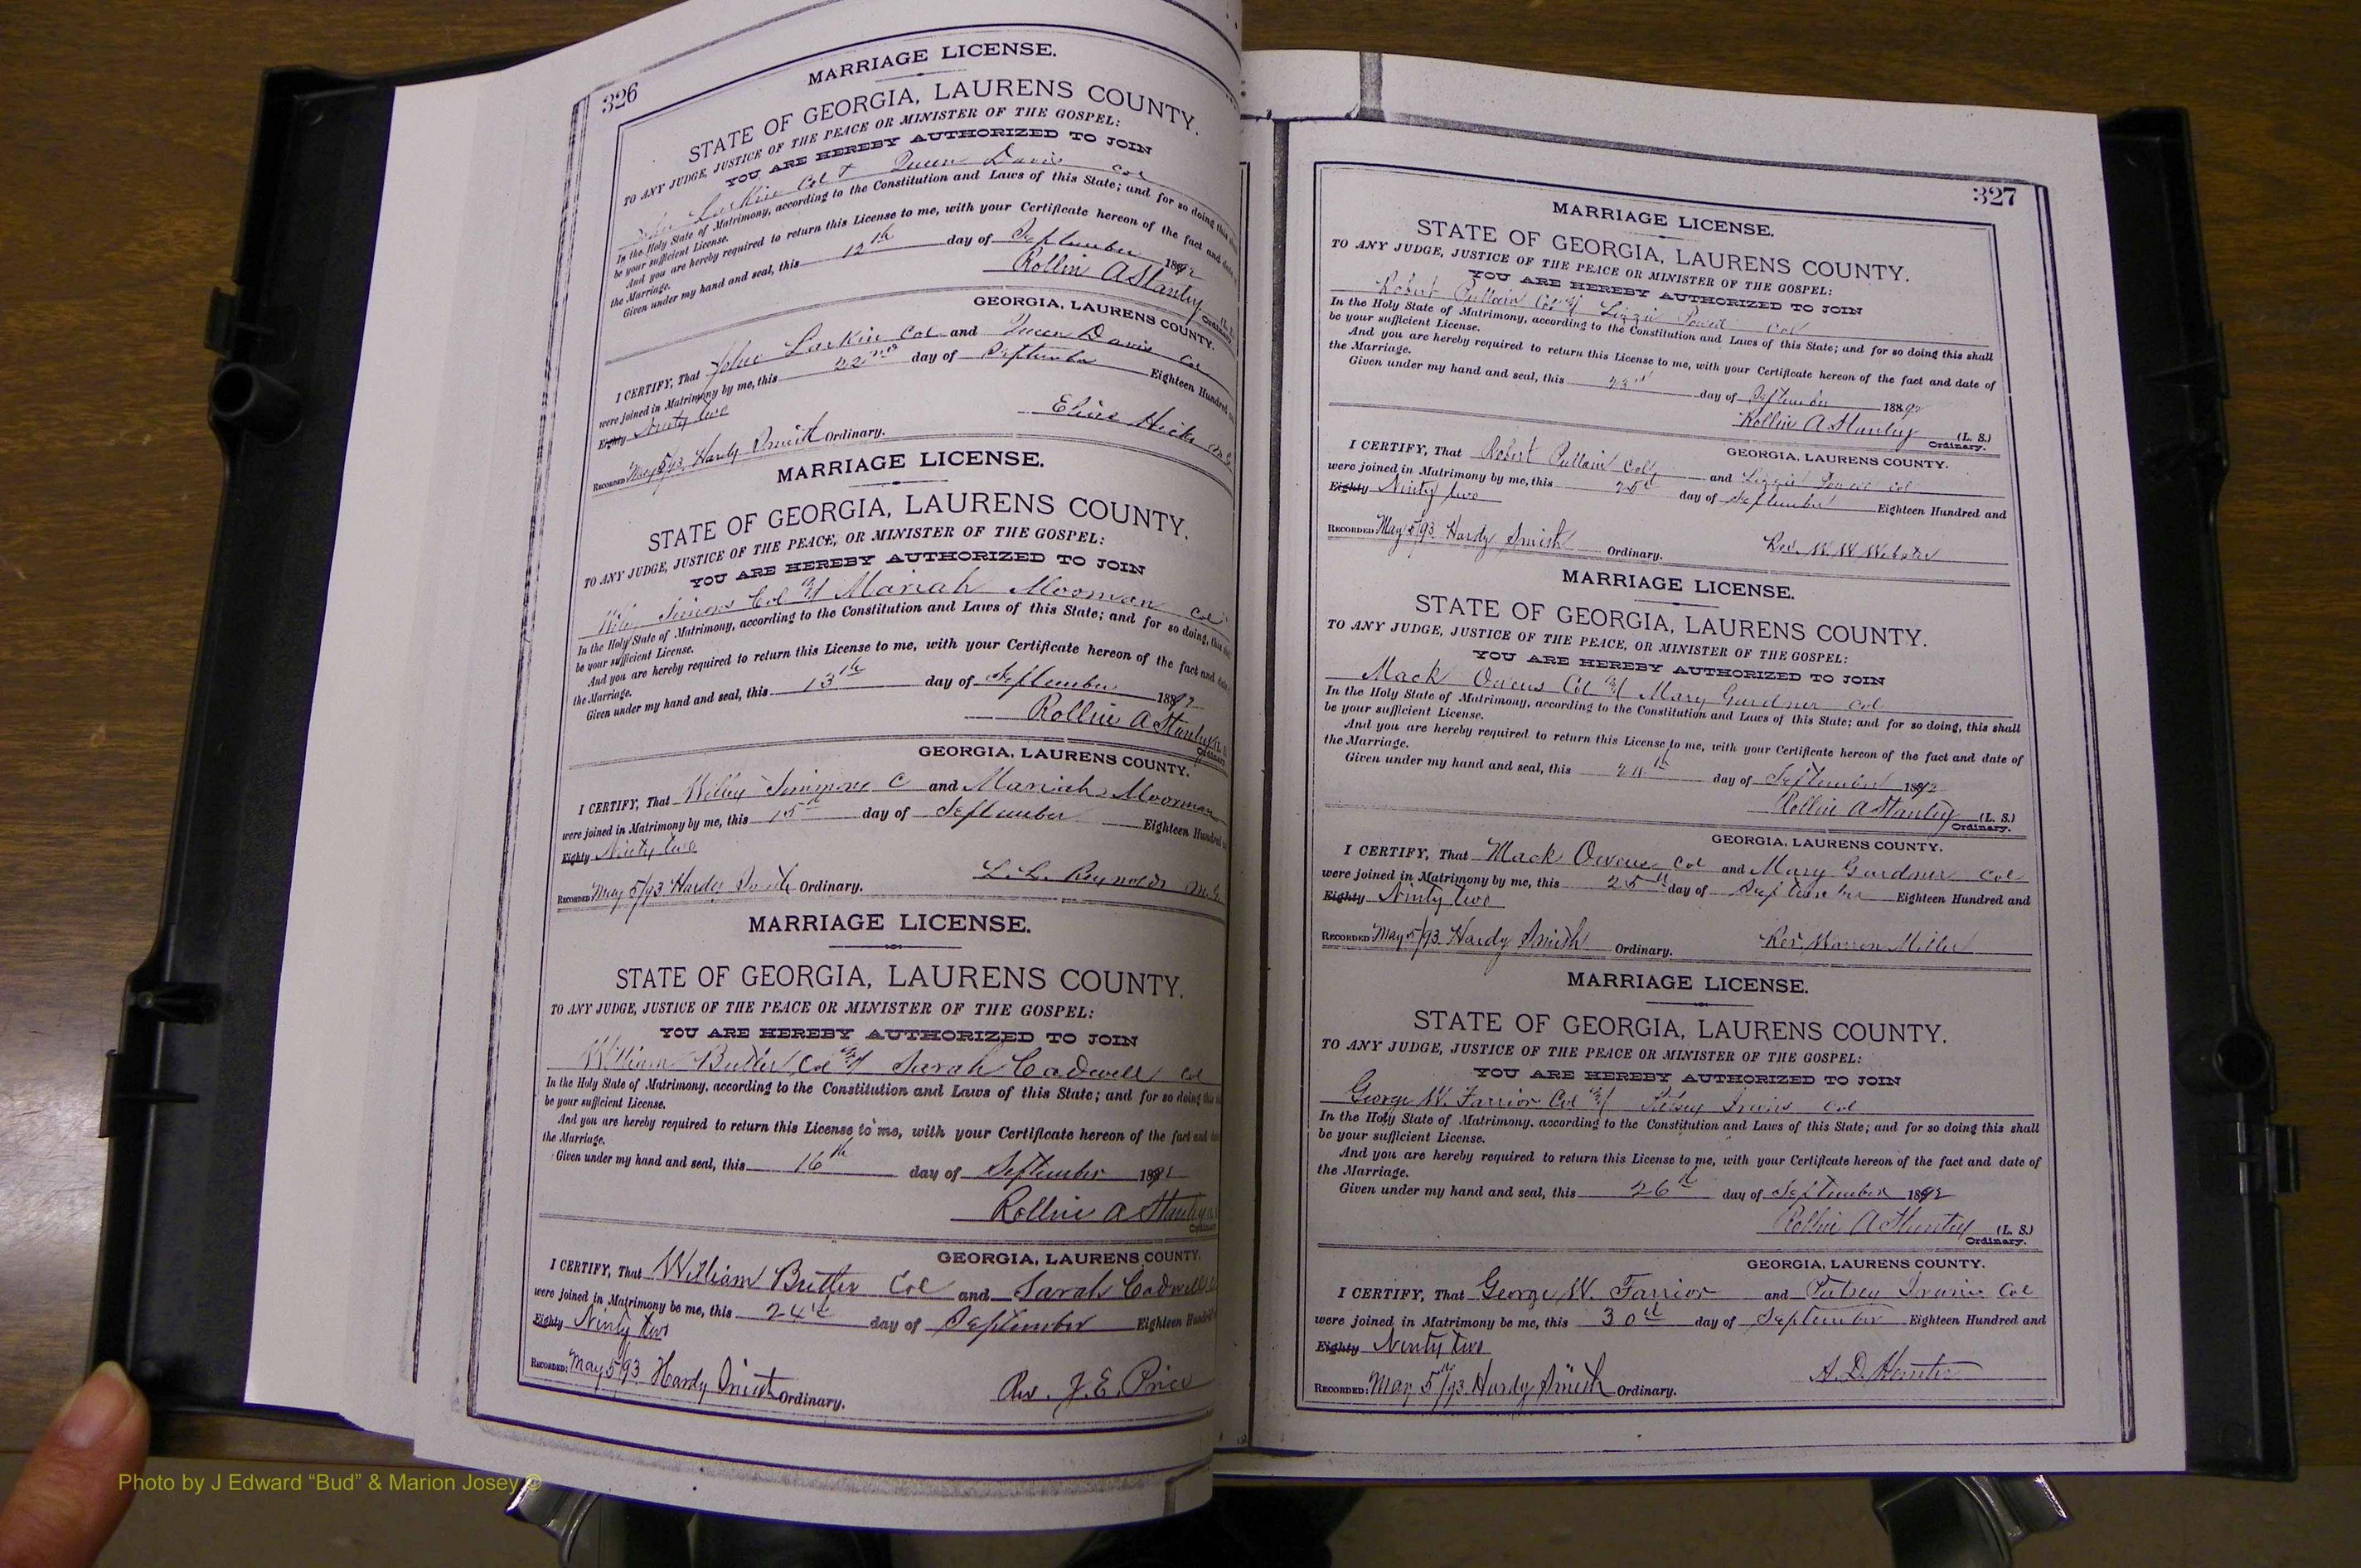 326
MARRIAGE LICENSE.
STATE OF GEORGIA, LAURENS COUNTY.
TO ANY JUDGE, JUSTICE OF THE PEACE OR MINISTER OF THE GOSPEL:
YOU ARE HEREBY AUTHORIZED TO JOIN
John Larkin Col & Queen Davis Col
In the Holy State of Matrimony, according to the Constitution and Laws of this State; and for so doing this
be your sufficient License.
And you are hereby required to return this License to me, with your Certificate hereon of the fact and date
the Marriage.
Given under my hand and seal, this 12th day of September 1892
Rollin A Stanley (L.
Ordinary
GEORGIA, LAURENS COUNTY.
I CERTIFY, That John Larkin Col and Queen Davis Col
were joined in Matrimony by me, this 22nd day of September Eighteen Hundred
Eighty Ninety two
Elias Hicks M.G.
RECORDED May 5/93 Hardy Smith Ordinary.
MARRIAGE LICENSE.
STATE OF GEORGIA, LAURENS COUNTY.
TO ANY JUDGE, JUSTICE OF THE PEACE, OR MINISTER OF THE GOSPEL:
YOU ARE HEREBY AUTHORIZED TO JOIN
Col Mariah Moorman Col
In the Holy State of Matrimony, according to the Constitution and Laws of this State; and for so doing, this
be your sufficient License.
And you are hereby required to return this License to me, with your Certificate hereon of the fact and
the Marriage.
Given under my hand and seal, this 13th day of September 1892
Rollin A Stanley
Ordinary
GEORGIA, LAURENS COUNTY.
I CERTIFY, That Willey Simmons C and Mariah Moorman
were joined in Matrimony by me, this 15th day of September Eighteen Hundred
Eighty Ninety two
L. L. Reynolds M.G.
RECORDED May 5/93 Hardy Smith Ordinary.
MARRIAGE LICENSE.
STATE OF GEORGIA, LAURENS COUNTY.
TO ANY JUDGE, JUSTICE OF THE PEACE OR MINISTER OF THE GOSPEL:
YOU ARE HEREBY AUTHORIZED TO JOIN
William Butler Col & Sarah Cadwell Col
In the Holy State of Matrimony, according to the Constitution and Laws of this State; and for so doing this
be your sufficient License.
And you are hereby required to return this License to me, with your Certificate hereon of the fact and
the Marriage.
Given under my hand and seal, this 16th day of September 1892
Rollin A Stanley
Ordinary
GEORGIA, LAURENS COUNTY.
I CERTIFY, That William Butler Col and Sarah Cadwell
were joined in Matrimony be me, this 24th day of September Eighteen Hundred
Eighty Ninty two
RECORDED: May 5/93 Hardy Smith Ordinary.
Rev. J. E. Price
327
MARRIAGE LICENSE.
STATE OF GEORGIA, LAURENS COUNTY.
TO ANY JUDGE, JUSTICE OF THE PEACE OR MINISTER OF THE GOSPEL:
YOU ARE HEREBY AUTHORIZED TO JOIN
Robert Pullain Col & Lizzie Powell Col
In the Holy State of Matrimony, according to the Constitution and Laws of this State; and for so doing this shall
be your sufficient License.
And you are hereby required to return this License to me, with your Certificate hereon of the fact and date of
the Marriage.
Given under my hand and seal, this day of September 1892
Rollin A Stanley (L. S.)
Ordinary.
GEORGIA, LAURENS COUNTY.
I CERTIFY, That Robert Pullain Col, and Lizzie Col
were joined in Matrimony by me, this 25th day of September Eighteen Hundred and
Eighty Ninety two
RECORDED May 5/93 Hardy Smith Ordinary. Rev. W. W. Webster
MARRIAGE LICENSE.
STATE OF GEORGIA, LAURENS COUNTY.
TO ANY JUDGE, JUSTICE OF THE PEACE, OR MINISTER OF THE GOSPEL:
YOU ARE HEREBY AUTHORIZED TO JOIN
Mack Owens Col & Mary Gardner Col
In the Holy State of Matrimony, according to the Constitution and Laws of this State; and for so doing, this shall
be your sufficient License.
And you are hereby required to return this License to me, with your Certificate hereon of the fact and date of
the Marriage.
Given under my hand and seal, this day of September 1892
Rollin A Stanley (L. S.)
Ordinary.
GEORGIA, LAURENS COUNTY.
I CERTIFY, That Mack Owens Col and Mary Gardner Col
were joined in Matrimony by me, this 25th day of September Eighteen Hundred and
Eighty Ninty two
RECORDED May 5/93 Hardy Smith Ordinary. Rev. Warren Miller
MARRIAGE LICENSE.
STATE OF GEORGIA, LAURENS COUNTY.
TO ANY JUDGE, JUSTICE OF THE PEACE OR MINISTER OF THE GOSPEL:
YOU ARE HEREBY AUTHORIZED TO JOIN
George W. Farrior Col & Patsey Col
In the Holy State of Matrimony, according to the Constitution and Laws of this State; and for so doing this shall
be your sufficient License.
And you are hereby required to return this License to me, with your Certificate hereon of the fact and date of
the Marriage.
Given under my hand and seal, this 26th day of September 1892
Rollin A Stanley (L. S.)
Ordinary.
GEORGIA, LAURENS COUNTY.
I CERTIFY, That George W. Farrior and Patsey Col
were joined in Matrimony be me, this 30th day of September Eighteen Hundred and
Eighty Ninty two
A. D.
RECORDED: May 5th/93 Hardy Smith Ordinary.
Photo by J Edward “Bud” & Marion Josey ©